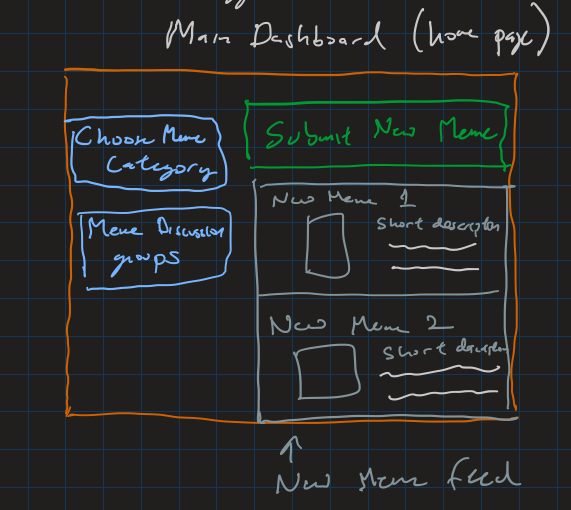 Main Dashboard (home page)
Choose Meme
Category
Meme Discussion
groups
Submit New Meme
New Meme 1
Short description
New Meme 2
Short description
New Meme feed